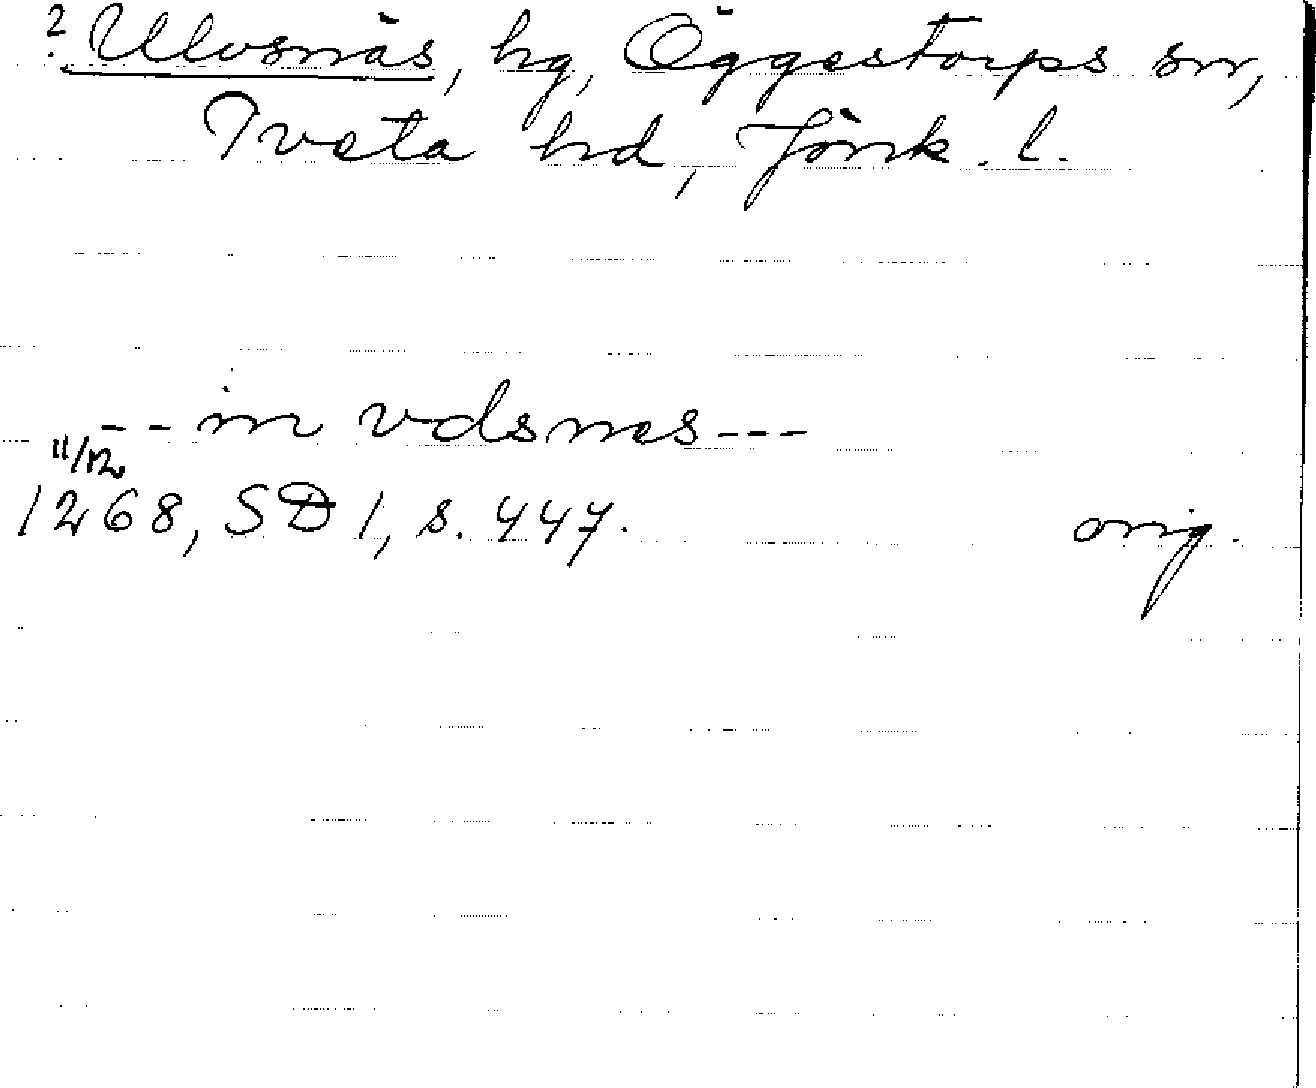 ? Ulvsnäs, hg, Öggestorps sn,
Tveta hd, Jönk. l.
-- in vdsnes ---
11/12
1268, SD 1, s. 447. orig.